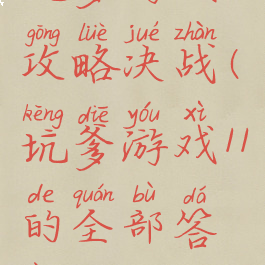 gōng lüè jué zhàn
攻略决战(
kēng diē yóu xì
坑爹游戏11
de quán bù dá
的全部答